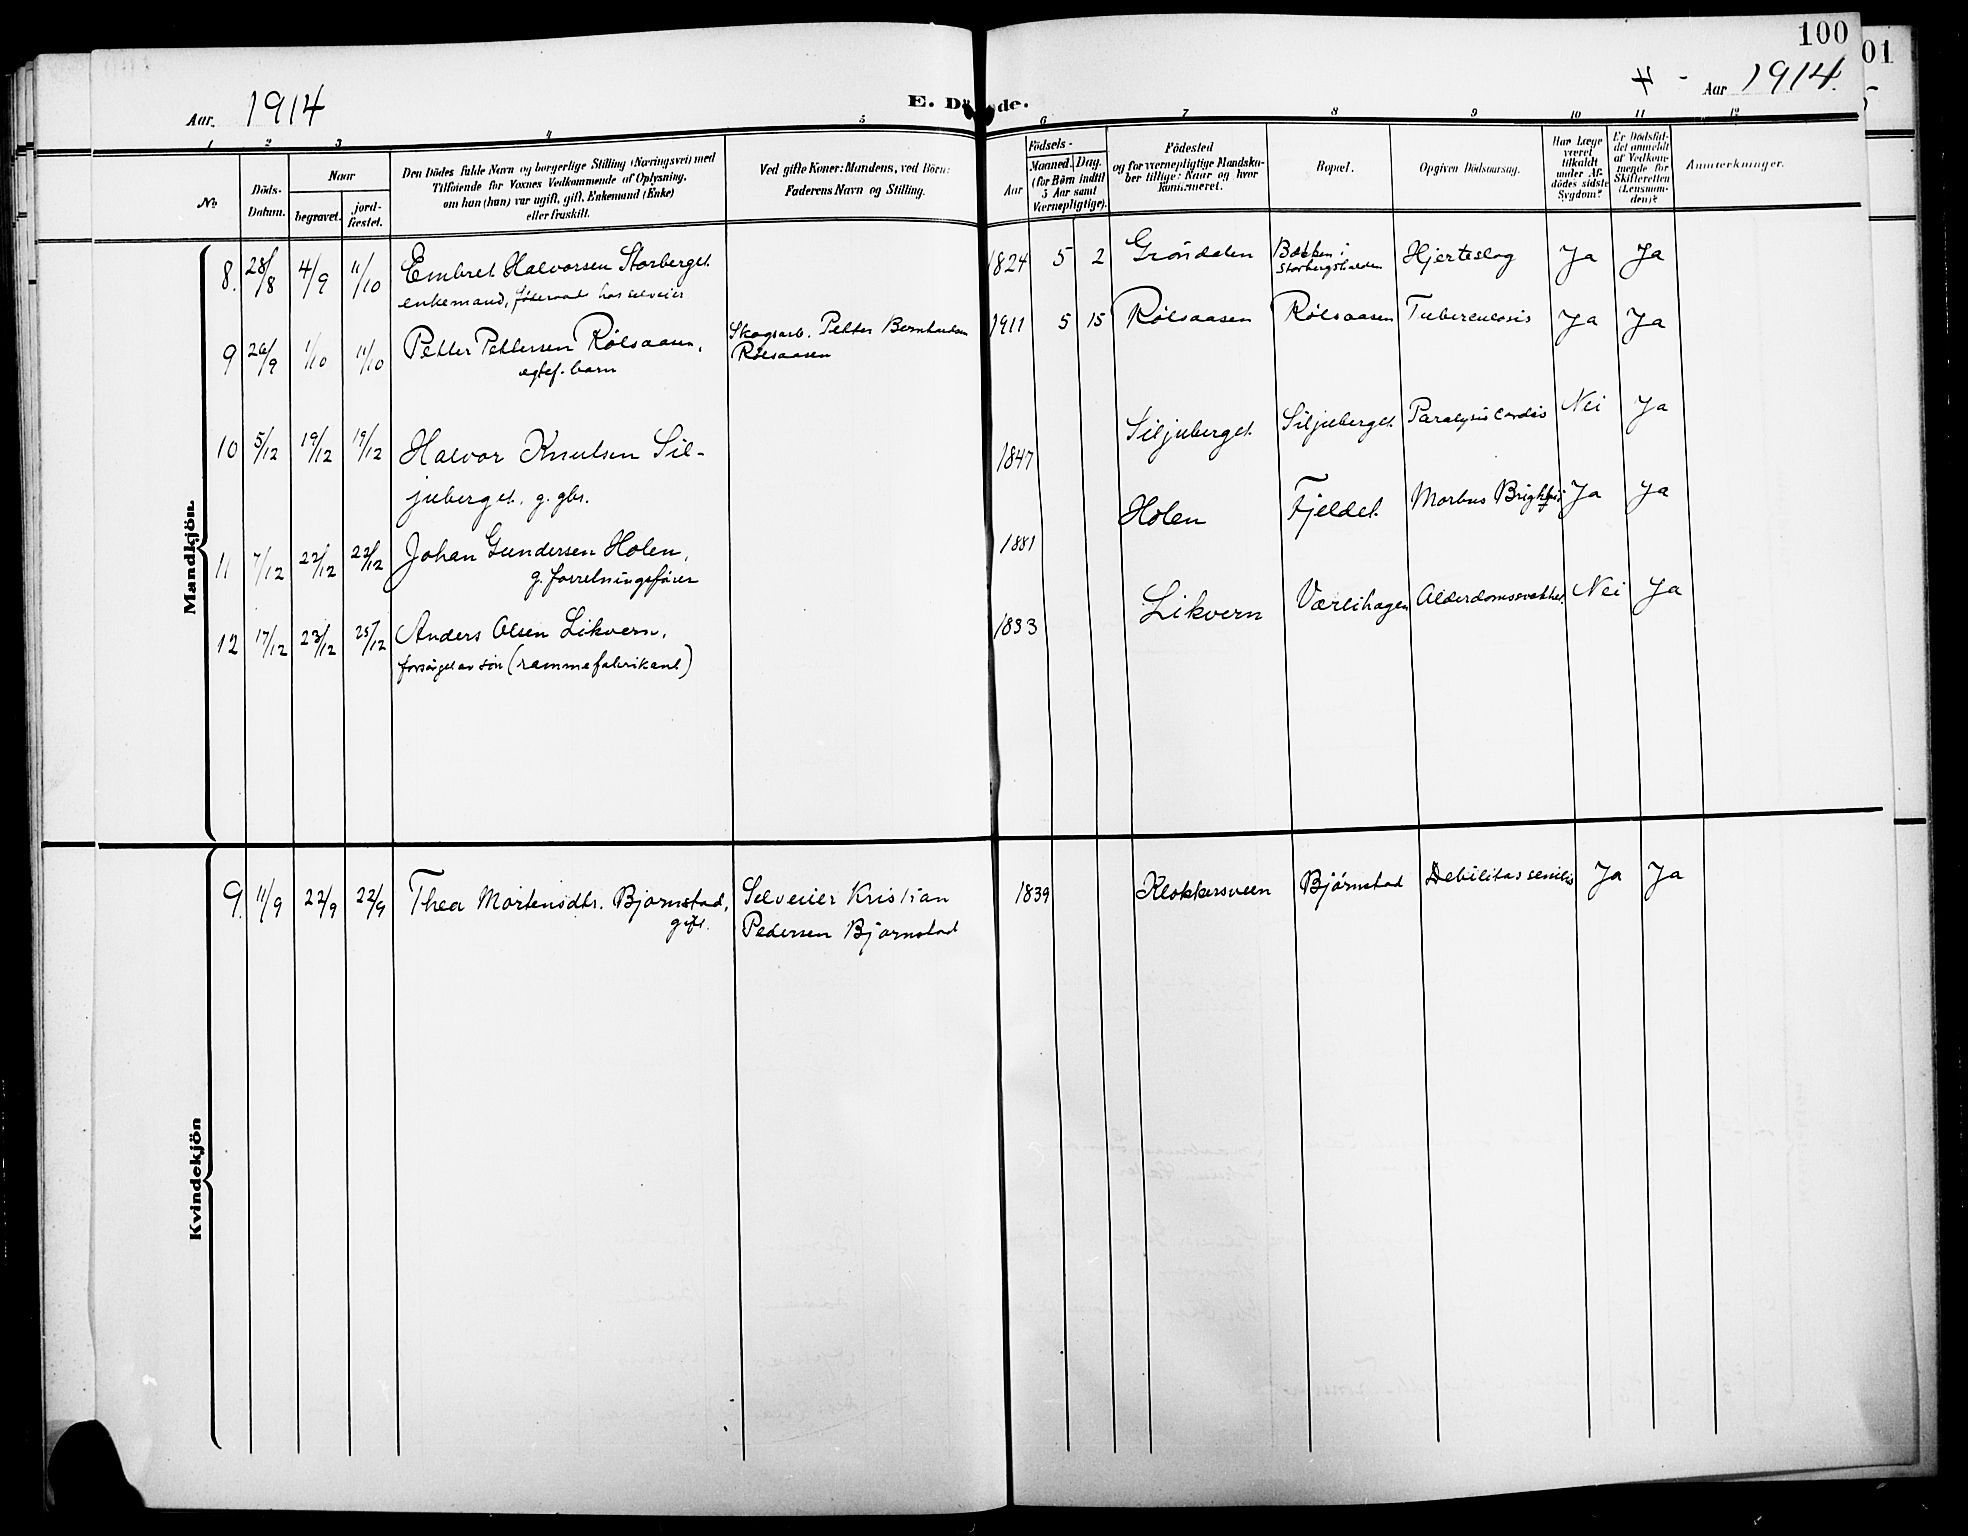 100
01
Aar. 1914
E. Dö de.
Aar 1914.
1 2 3 4 5 6 7 8 9 10 11 12
No
Döds-
Datum.
Naar
begravet.
jord-
fæstet.
Den Dödes fulde Navn og borgerlige Stilling (Næringsvei) med
Tilföiende for Voxnes Vedkommende af Oplysning,
om han (hun) var ugift, gift, Enkemand (Enke)
eller fraskilt.
Ved gifte Koner: Mandens, ved Börn:
Faderens Navn og Stilling.
Födsels-
Aar
Maaned. Dag.
(for Börn indtil
5 Aar samt
Værnepligtige).
Födested
og for værnepligtige Mandska-
ber tillige: Naar og hvor
konfirmeret.
Bopæl.
Opgiven Dödsaarsag.
Har Læge
været
tilkaldt
under Af-
dödes sidste
Sygdom?
Er Dödsfal-
det anmeldt
af Vedkom-
mende for
Skifteretten
(Lensman-
den)?
Anmærkninger.
Mandkjön.
8. 28/8 4/9 11/10 Embret Halvorsen Storberget 1824 5 2 Gröndalen Bakken i Hjerteslag Ja Ja
enkemand, føderaad hos selveier Storbergshalden
9 26/9 1/10 11/10 Petter Pettersen Rølsaasen, Skogsarb. Petter Bernhardsen 1911 5 15 Rølsaasen Rølsaasen Tuberculosis Ja Ja
egtef. barn Rølsaasen
10 5/12 19/12 19/12 Halvor Knutsen Sil- 1847 Siljuberget Siljuberget Paralysis cordis Nei Ja
juberget. g. gbr.
11 7/12 22/12 22/12 Johan Gundersen Holen, 1881 Holen Fjeldet Morbus Brightii Ja Ja
g. forretningsfører
12 17/12 23/12 23/12 Anders Olsen Likvern, 1833 Likvern Værlihagen Alderdomssvakhet Nei Ja
forsørget av søn (rammefabrikant)
Kvindekjön
9. 11/9 22/9 22/9 Thea Mortensdtr. Bjørnstad, Selveier Kristian 1839 Klokkersveen Bjørnstad Debilitas senilis Ja Ja
gift. Pedersen Bjørnstad